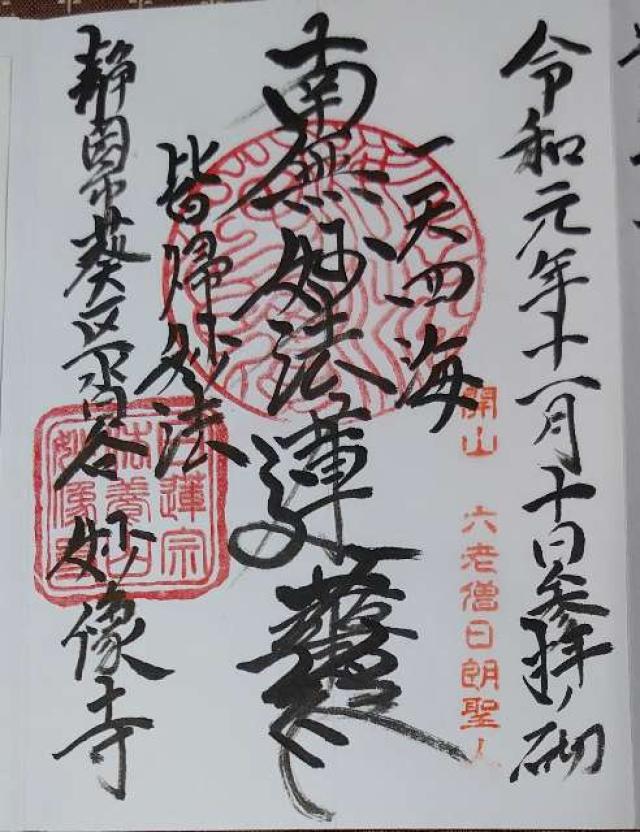 令和元年十一月十日参拝ノ砌
開山 六老僧日朗聖人
一天四海
南無妙法蓮華経
皆帰妙法
静岡市葵区沓谷 妙像寺